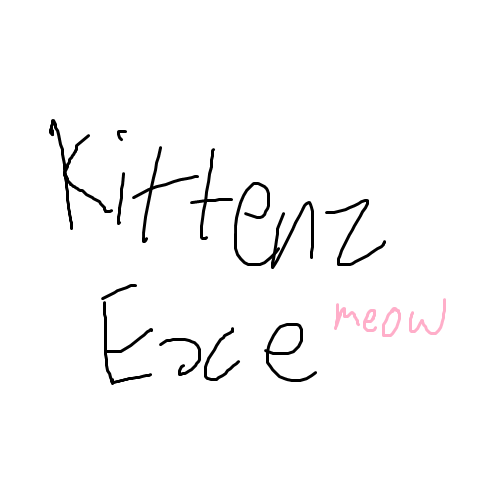 Kittenz
Eace meow